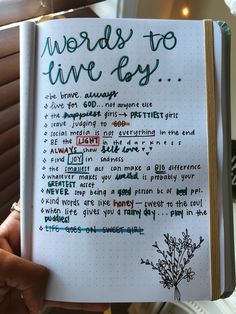 words to
live by...
• be brave. always
• live for GOD... not anyone else
• the happiest girls → prettiest girls
• leave judging to GOD
• social media is not everything in the end
• BE the LIGHT in the darkness
• ALWAYS show self love ♥♥♥
• FIND JOY in sadness
• the smallest act can make a BIG difference
• whatever makes you weird is probably your
GREATEST asset
• NEVER stop being a good person bc of bad ppl.
• kind words are like honey — sweet to the soul
• when life gives you a rainy day... play in the
puddles!
• LIFE GOES ON SWEET GIRL